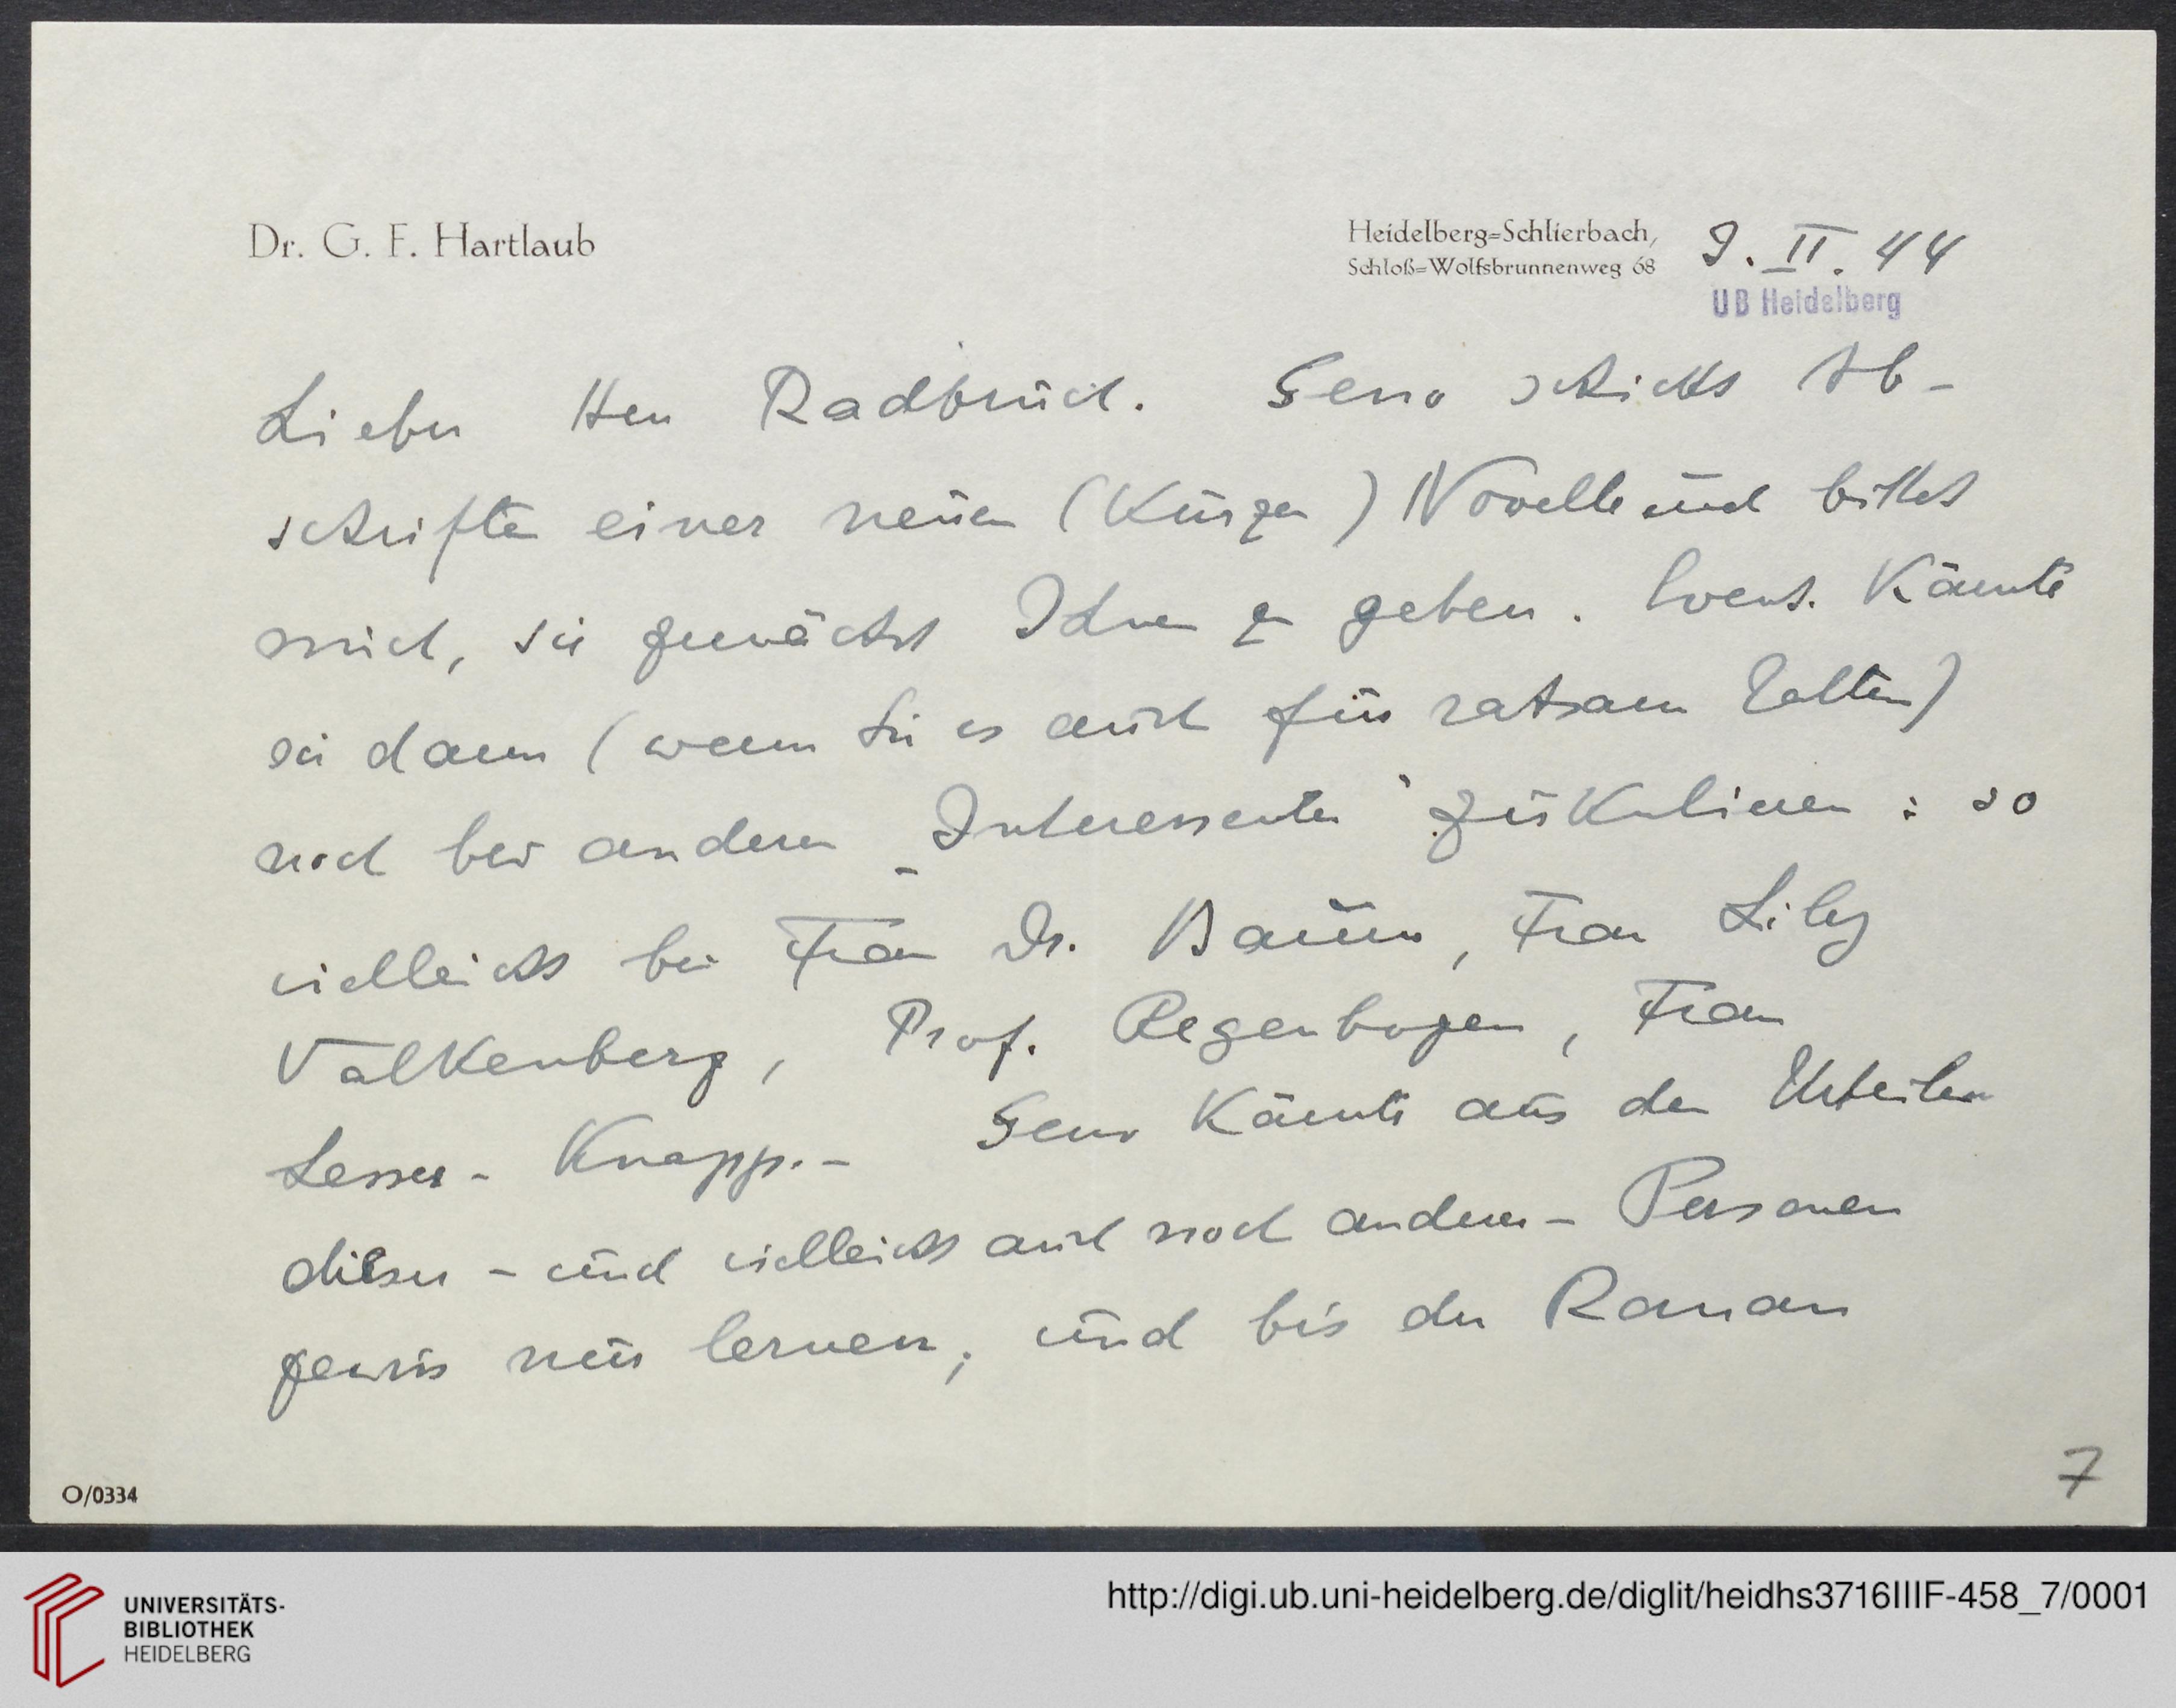 Dr. G. F. Hartlaub
Heidelberg-Schlierbach,
Schloß-Wolfsbrunnenweg 68
9. II. 44
UB Heidelberg
Lieber Herr Radbruch. Geno schickt Ab-
schriften einer neuen (kurzen) Novelle und bittet
mich, sie zunächst Ihnen zu geben. Event. könnte
sie dann (wenn Sie es auch für ratsam halten)
noch bei anderen „Interessenten" zirkulieren: so
vielleicht bei Frau Dr. Baum, Frau Lily
Valkenberg, Prof. Regenbogen, Frau
Lesser-Knapp.- Geno könnte aus den Urteilen
dieser - und vielleicht auch noch anderer - Personen
gewis nur lernen; und bis der Roman
O/0334
7
UNIVERSITÄTS-
BIBLIOTHEK
HEIDELBERG
http://digi.ub.uni-heidelberg.de/diglit/heidhs3716IIIF-458_7/0001